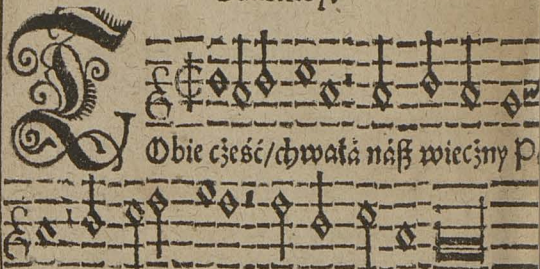 TObie cżeść/chwałá náß wieczny P